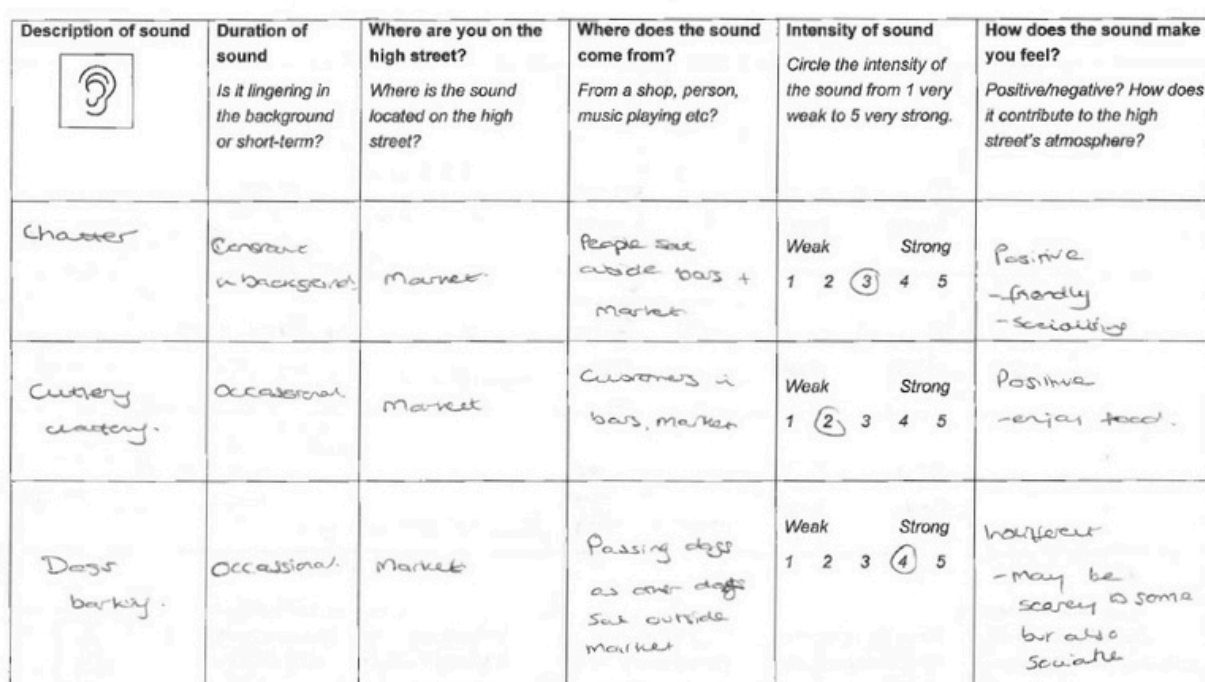 Description of sound
Duration of
sound
Is it lingering in
the background
or short-term?
Where are you on the
high street?
Where is the sound
located on the high
street?
Where does the sound
come from?
From a shop, person,
music playing etc?
Intensity of sound
Circle the intensity of
the sound from 1 very
weak to 5 very strong.
How does the sound make
you feel?
Positive/negative? How does
it contribute to the high
street's atmosphere?
Chatter
Constant
in background
Market
People sat
outside bars +
market
Weak Strong
1 2 3 4 5
Positive
- friendly
- socialising
Cutlery
clattery.
Occassional
Market
Customers in
bars, market
Weak Strong
1 2 3 4 5
Positive
- enjoy food.
Dogs
barking.
Occassional.
Market
Passing dogs
as other dogs
sat outside
market
Weak Strong
1 2 3 4 5
Indifferent
- may be
scarey to some
but also